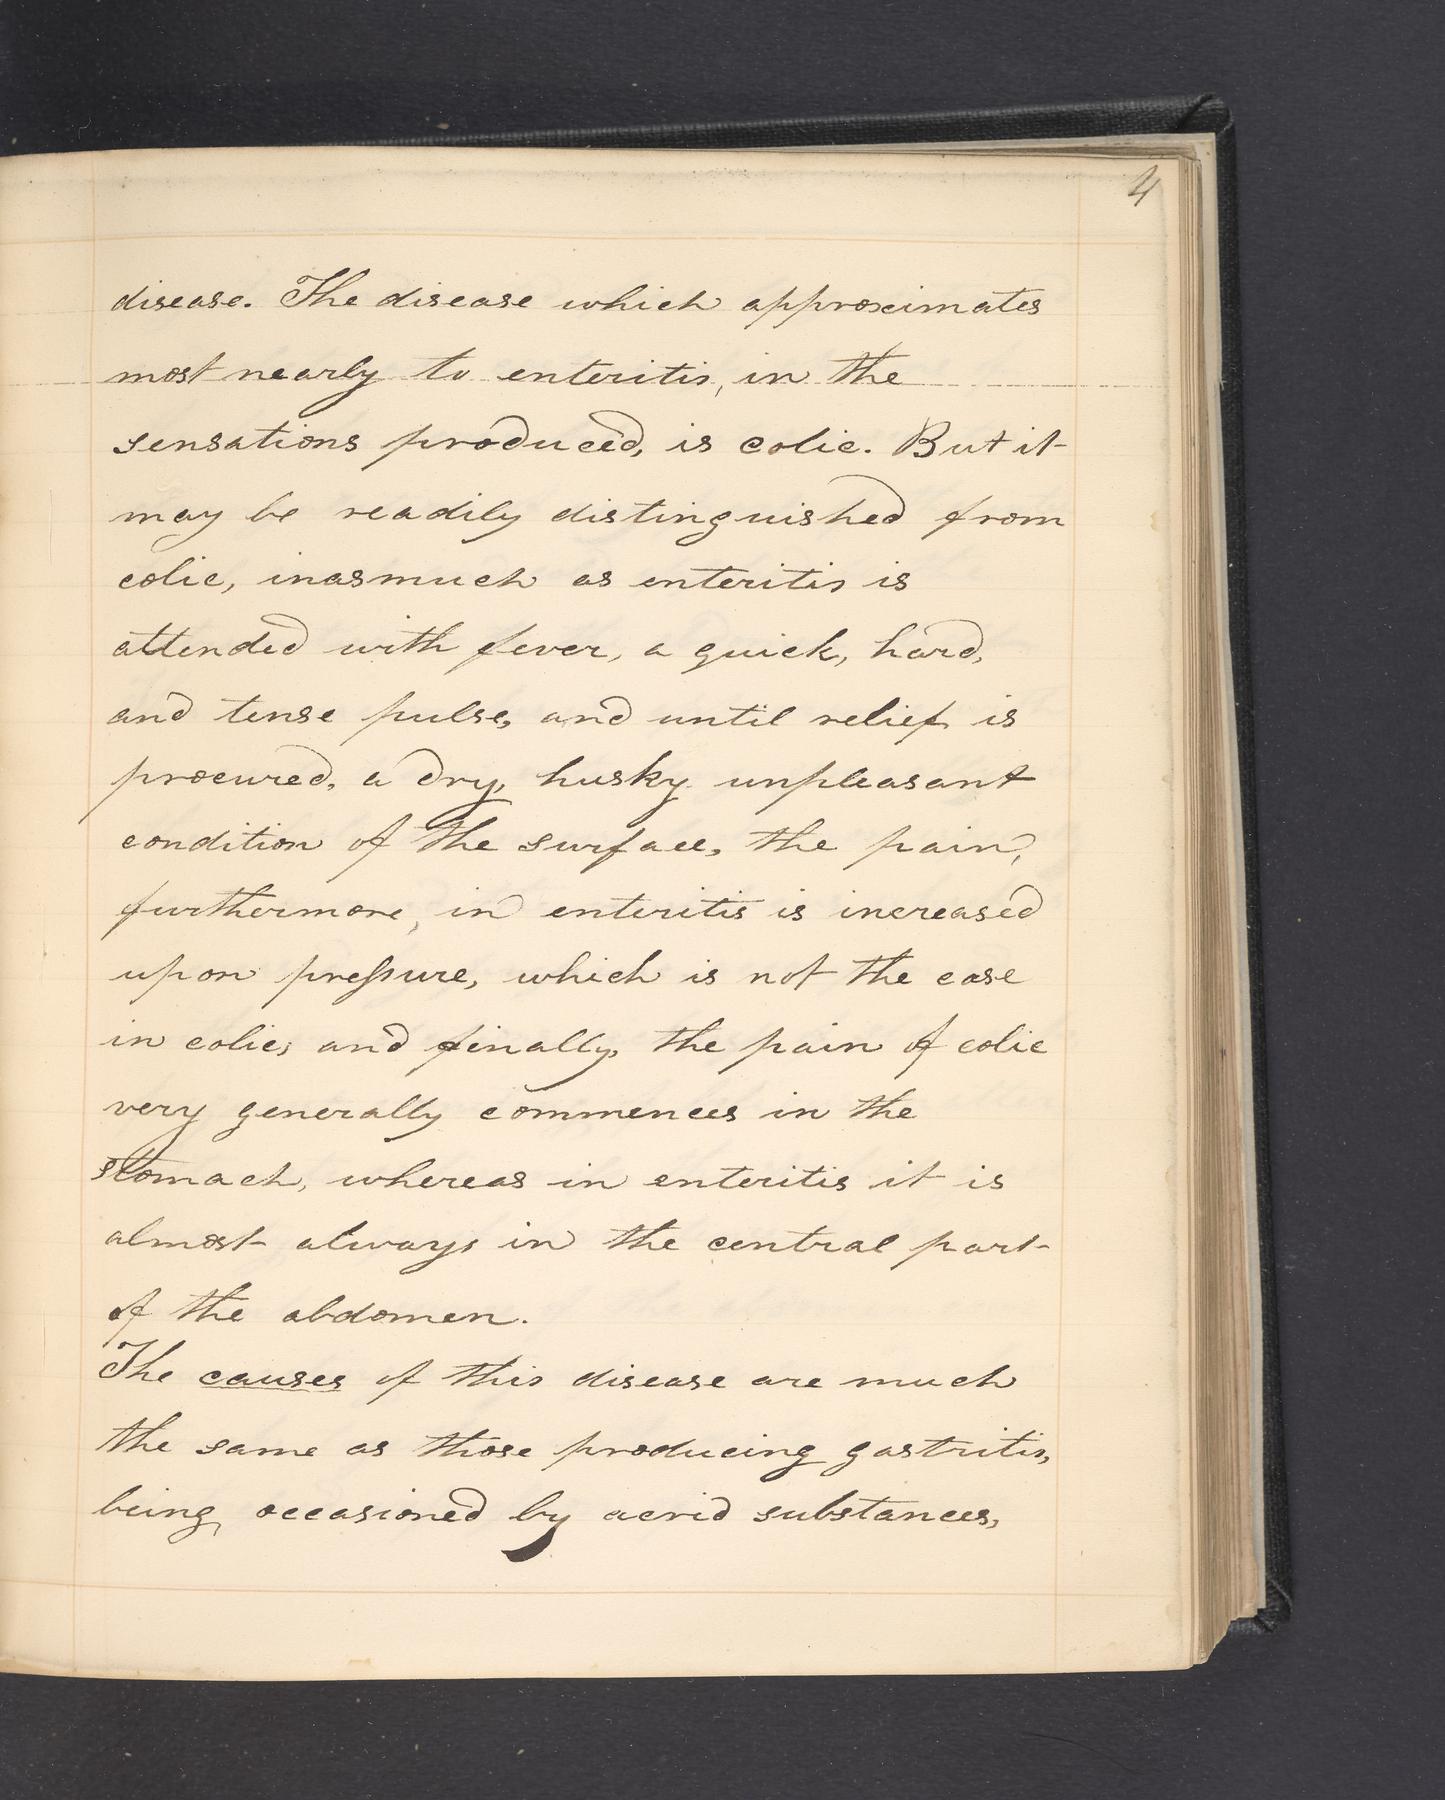 4
disease. The disease which approximates
most nearly to enteritis, in the
sensations produced, is colic. But it
may be readily distinguished from
colic, inasmuch as enteritis is
attended with fever, a quick, hard,
and tense pulse, and until relief is
procured, a dry, husky unpleasant
condition of the surface, the pain,
furthermore, in enteritis is increased
upon preſsure, which is not the case
in colic, and finally, the pain of colic
very generally commences in the
stomach, whereas in enteritis it is
almost always in the central part
of the abdomen.
The causes of this disease are much
the same as those producing gastritis,
being, occasioned by acrid substances,